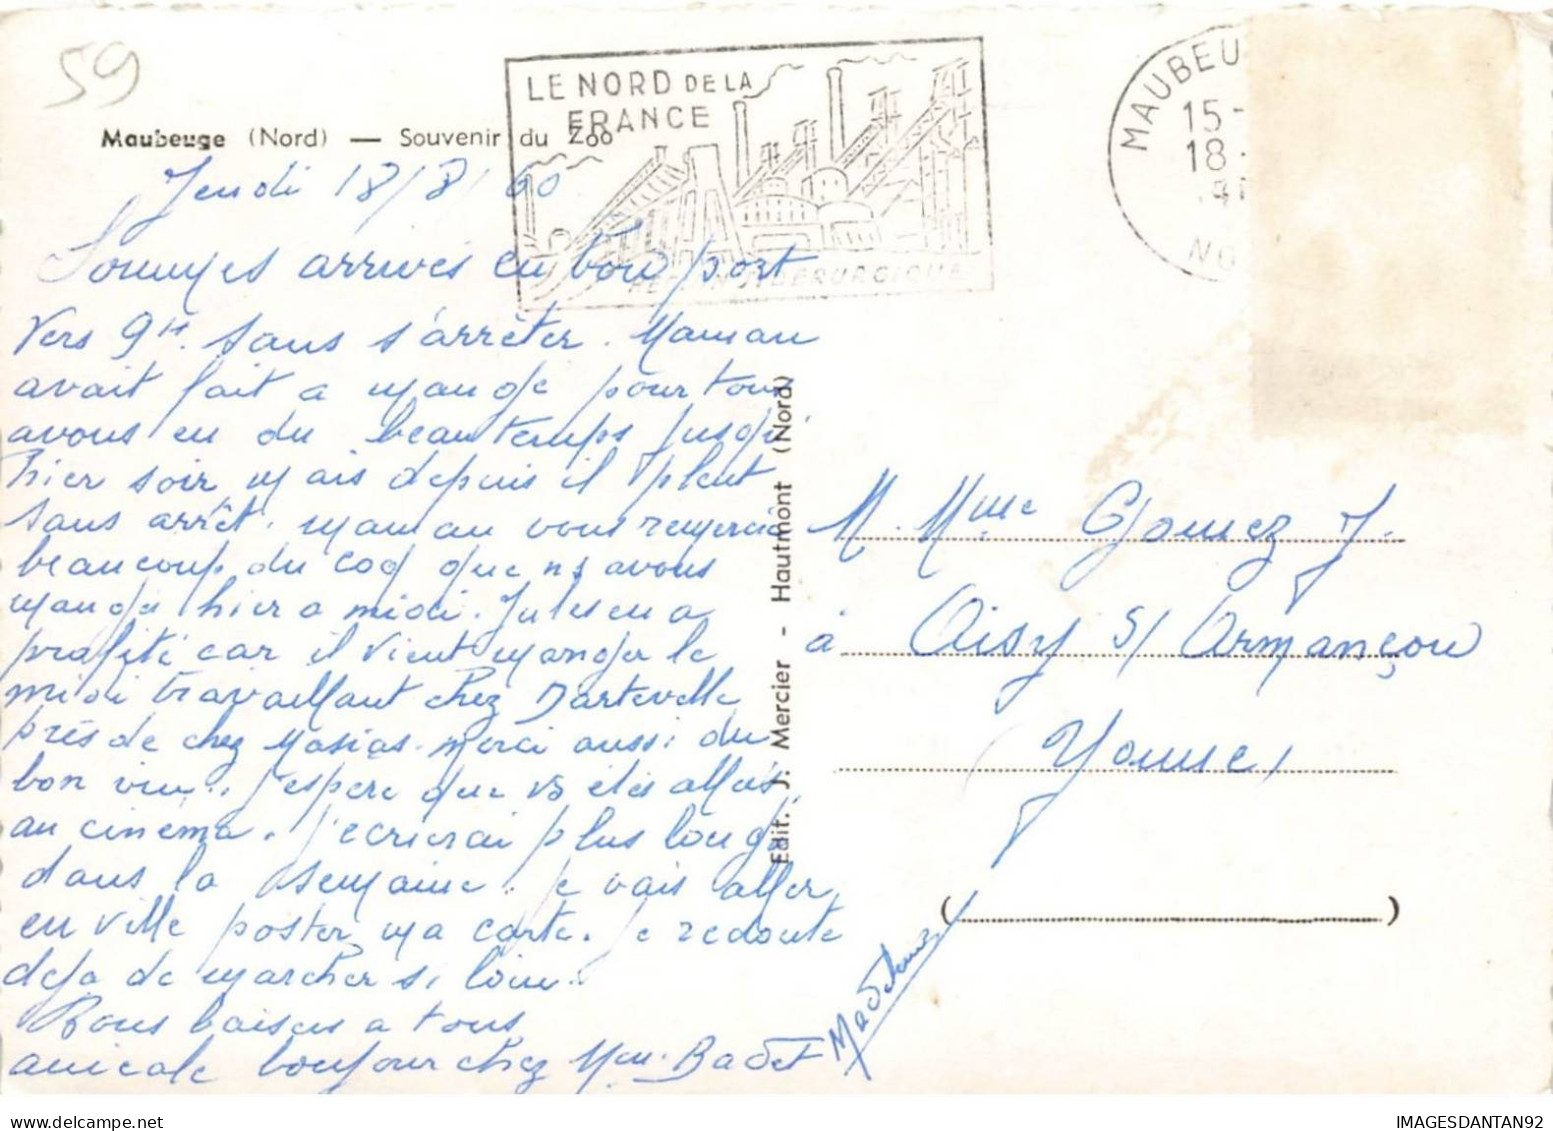 59
LE NORD DE LA
FRANCE
RÉGION SIDÉRURGIQUE
MAUBEU
15-
18-
NO
Maubeuge (Nord) — Souvenir du Zoo
Jeudi 18/8/60
Sommes arrivés en bon port
vers 9H. sans s'arrêter. Maman
avait fait a mangé pour tous
avons eu du beau temps jusqu'
hier soir mais depuis il pleut
sans arrêt. maman vous remercie
beaucoup du coq que ns avons
mangé hier a midi. Jules en a
profité car il vient manger le
midi travaillant chez Dartevelle
près de chez Masias. merci aussi du
bon vin. j'espère que vs etes allés
au cinéma. j'ecrierai plus longt
dans la semaine. je vais aller
en ville poster ma carte. je redoute
déja de marcher si loin.
Bons baisers a tous
amicale bonjour chez Mme Badet
Madeleine
Edit. J. Mercier - Hautmont (Nord)
M. Mme Gomez J.
à Aisy s/ Armançon
Yonne
( )
IMAGESDANTAN92